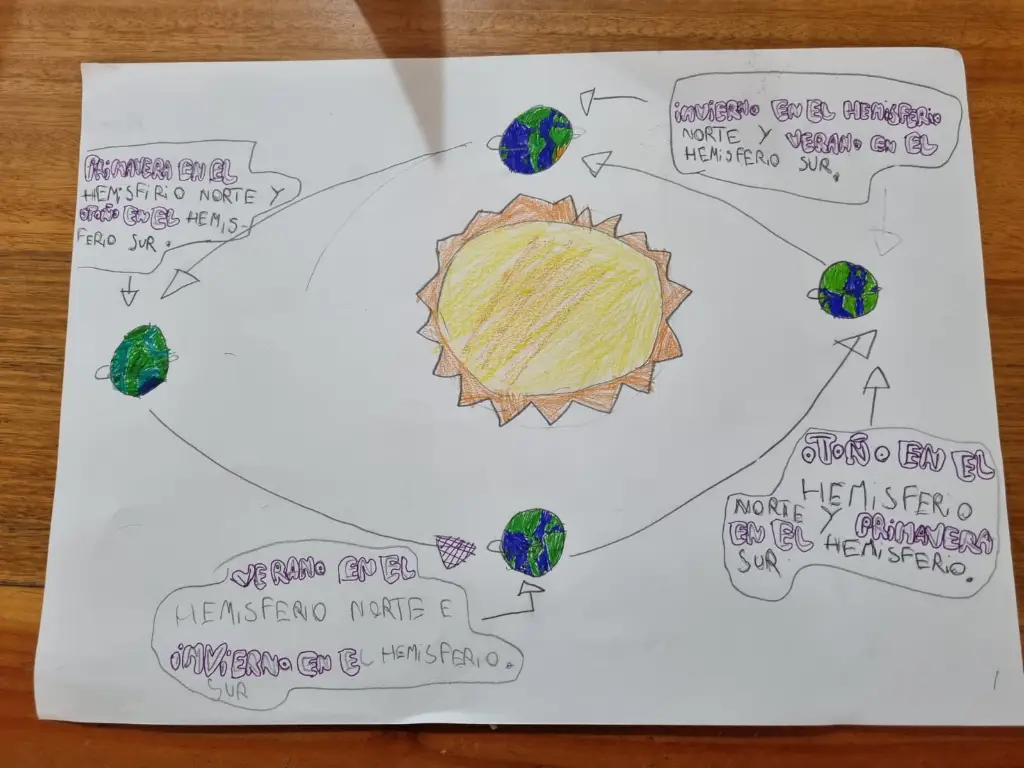 PRIMAVERA EN EL
HEMISFIRIO NORTE Y
OTOÑO EN EL HEMIS-
FERIO SUR.
INVIERNO EN EL HEMISFERIO
NORTE Y VERANO EN EL
HEMISFERIO SUR.
VERANO EN EL
HEMISFERIO NORTE E
INVIERNO EN EL HEMISFERIO.
SUR
OTOÑO EN EL
HEMISFERIO
NORTE Y PRIMAVERA
EN EL HEMISFERIO.
SUR